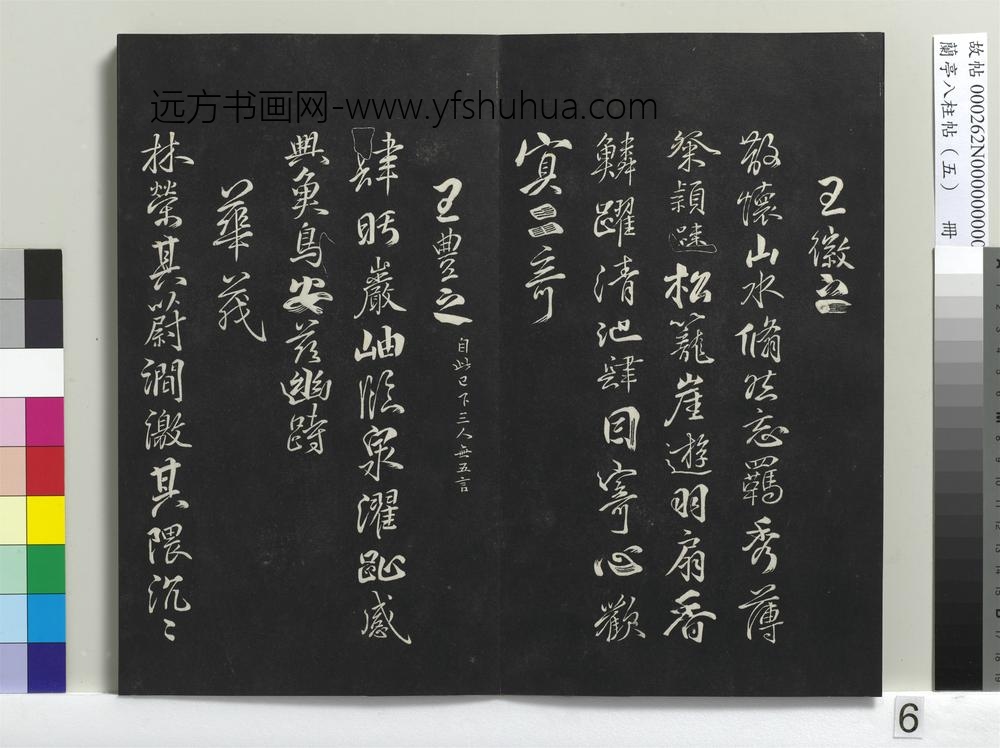 远方书画网-www.yfshuhua.com
故帖 000262N000000000
蘭亭八柱帖（五） 冊
王徽之
散懷山水脩然忘羈秀薄
粲穎踈松籠崖遊羽扇香
鱗躍清池肆目寄心歡
冥二奇
王豊之 自此已下三人無五言
肆眄巖岫臨泉濯趾感
興魚鳥安茲幽跱
華茂
林榮其蔚澗激其隈汎〻
6